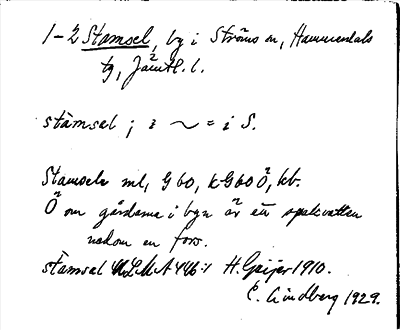 1-2 Stamsel, by i Ströms sn, Hammerdals
tg, Jämtl. l.
stàmsal ; i ~ = i S.
Stamsele ml, G 60, k G 60 Ö, kb.
Ö om gårdarna i byn är ett spakvatten
nedom en fors.
stàmsal ULMA 446:1 H. Geijer 1910.
E. Lindberg 1929.